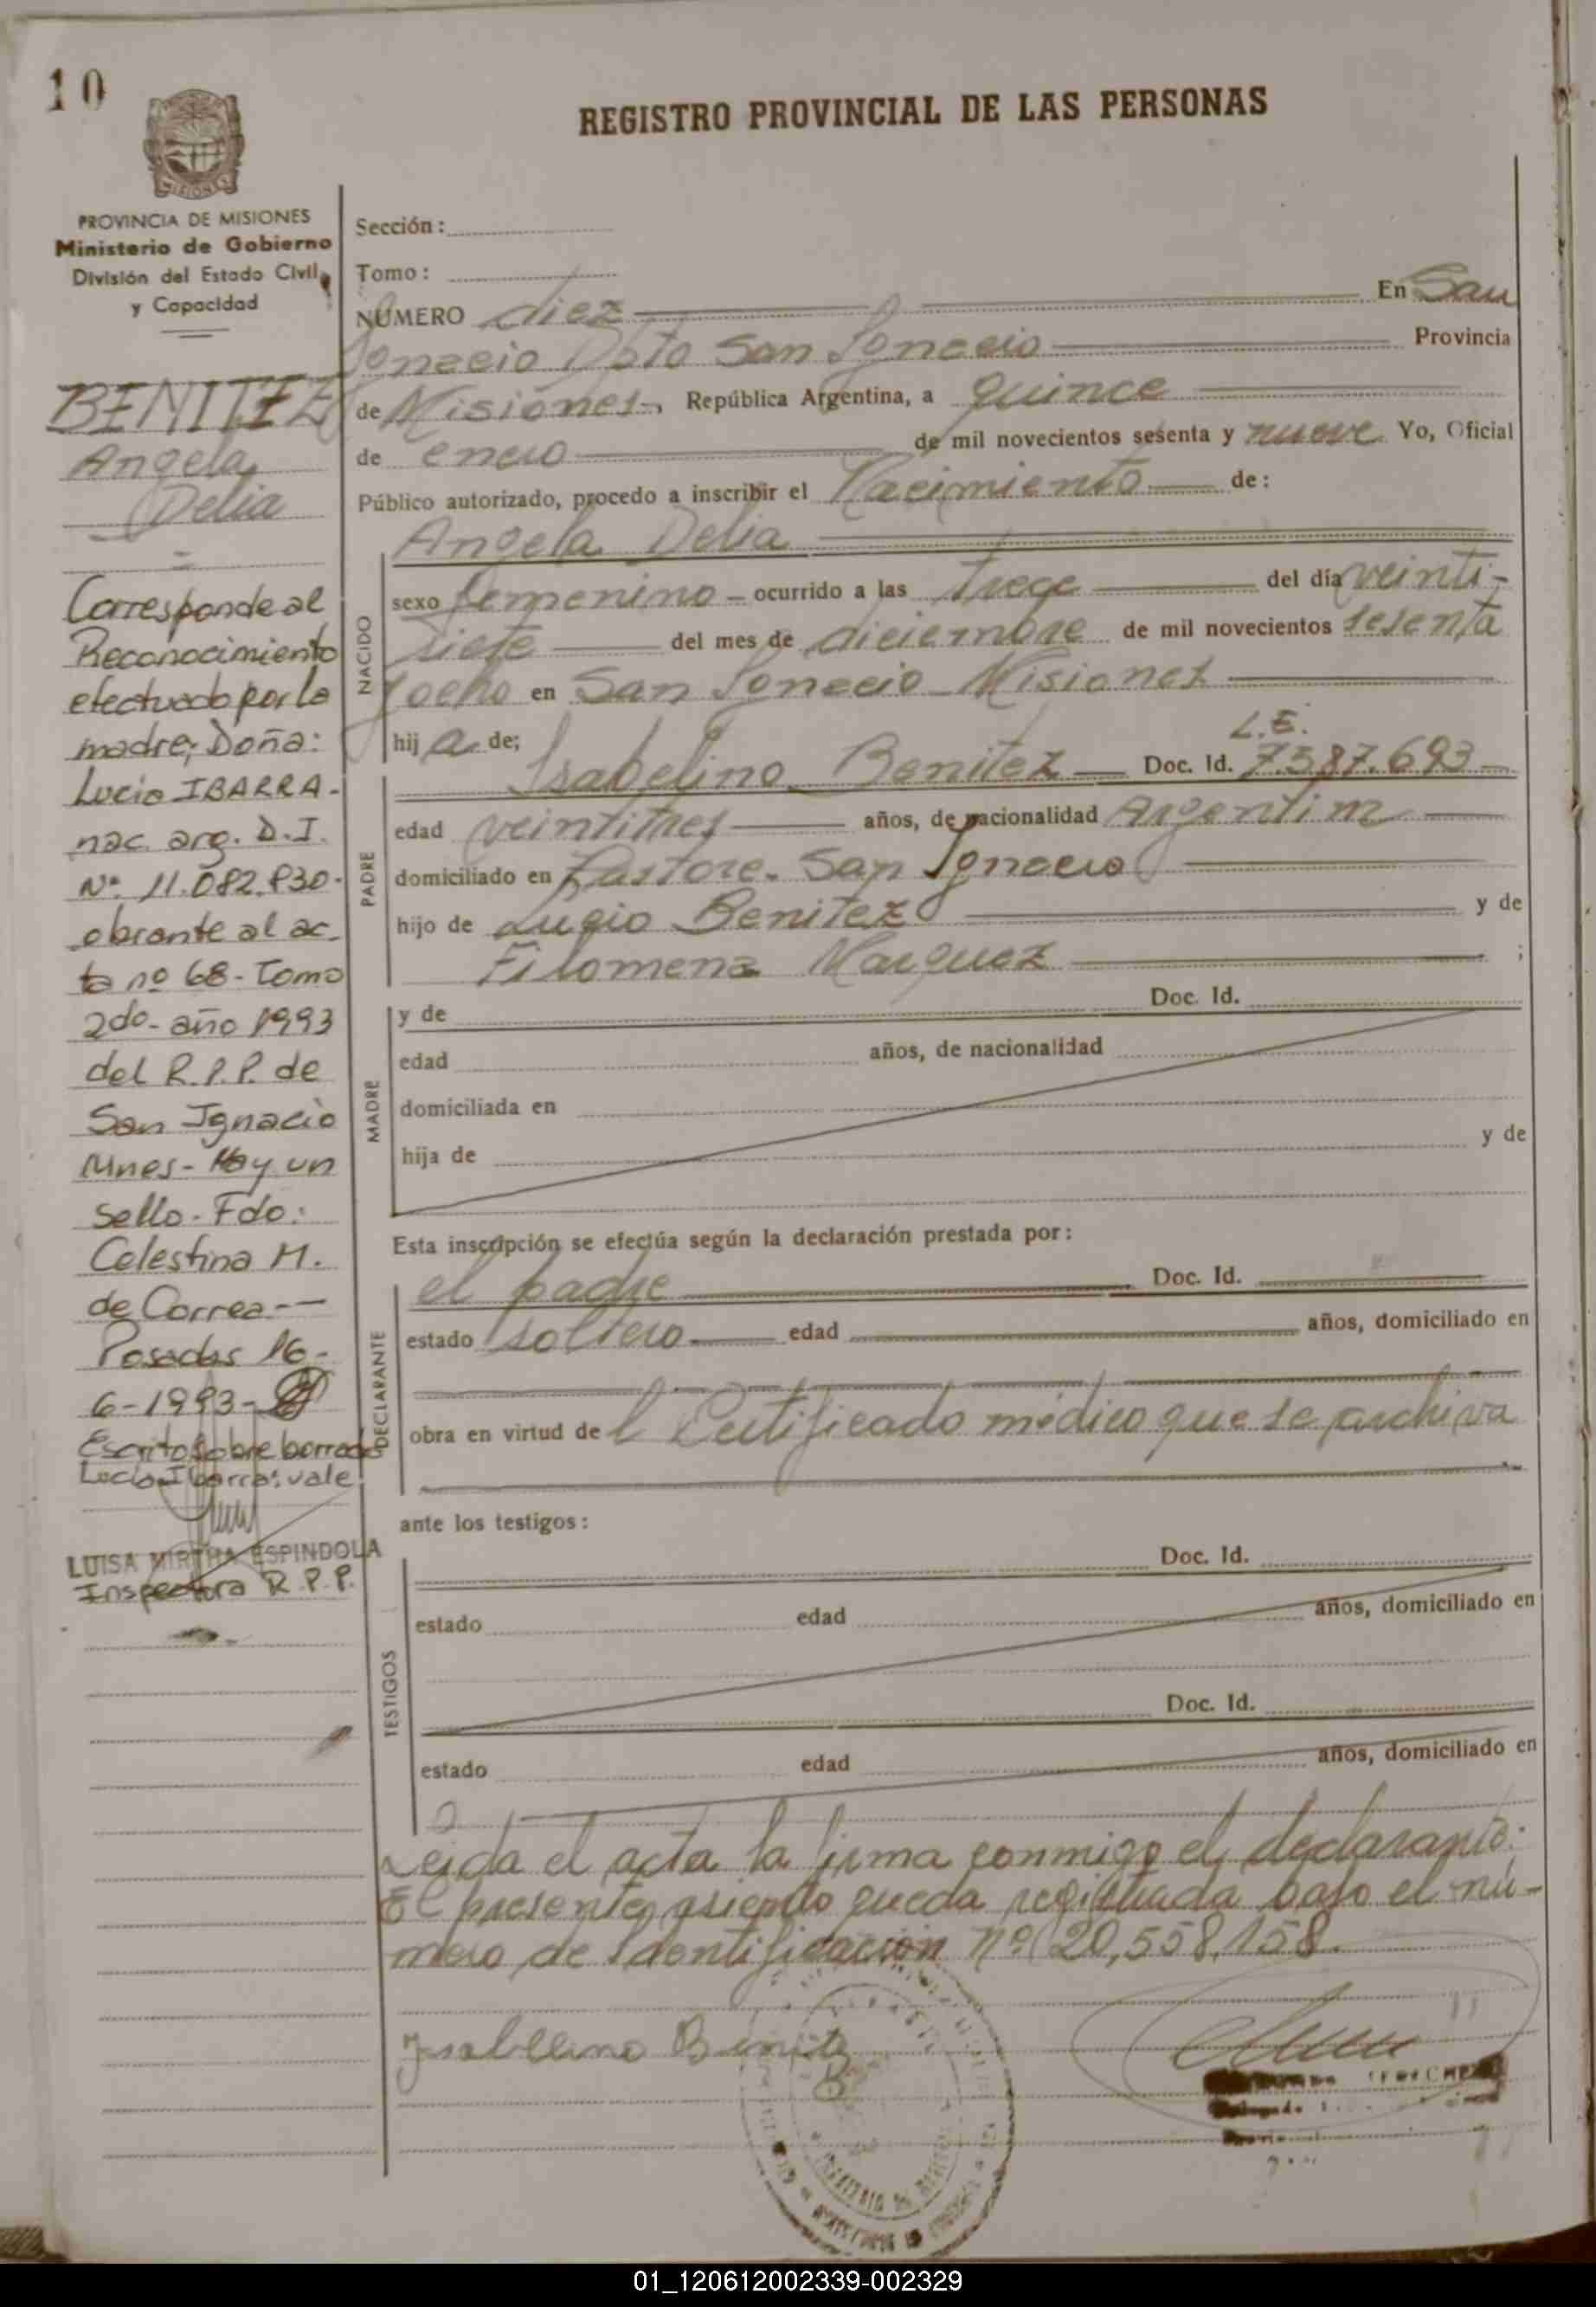 10
REGISTRO PROVINCIAL DE LAS PERSONAS
MISIONES
PROVINCIA DE MISIONES
Ministerio de Gobierno
División del Estado Civil
y Capacidad
BENITEZ
Angela
Delia
Corresponde al
Reconocimiento
efectuado por la
madre, Doña:
Lucia IBARRA-
nac. arg. D.I.
Nº 11.082.830-
obrante al ac-
ta nº 68-Tomo
2do-año 1993
del R.P.P. de
San Ignacio
Mnes- Hay un
sello. Fdo:
Celestina M.
de Correa.--
Posadas 16-
6-1993-
Escrito sobre borrado
Lucia Ibarra: vale
LUISA MIRTHA ESPINDOLA
Inspectora R.P.P.
Sección:
Tomo:
NÚMERO diez En San
Ignacio Dpto San Ignacio Provincia
de Misiones-, República Argentina, a quince
de enero de mil novecientos sesenta y nueve Yo, Oficial
Público autorizado, procedo a inscribir el Nacimiento de:
Angela Delia
NACIDO
sexo femenino - ocurrido a las trece del día veinti-
siete del mes de diciembre de mil novecientos sesenta
y ocho en San Ignacio Misiones
hij a de; Isabelino Benitez Doc. Id. L.E. 7.587.693
PADRE
edad veintitres años, de nacionalidad Argentina
domiciliado en Pastore. San Ignacio
hijo de Lucio Benitez y de
Filomena Marquez ;
MADRE
y de Doc. Id.
edad años, de nacionalidad
domiciliada en
hija de y de
Esta inscripción se efectúa según la declaración prestada por:
DECLARANTE
el padre Doc. Id.
estado soltero edad años, domiciliado en
obra en virtud de l Certificado médico que se archiva
ante los testigos:
TESTIGOS
Doc. Id.
estado edad años, domiciliado en
Doc. Id.
estado edad años, domiciliado en
Leida el acta la firma conmigo el declarante.
El presente asiento queda registrada bajo el nú-
mero de Identificación nº 20,558,158.
Isabelino Benitez
01_120612002339-002329